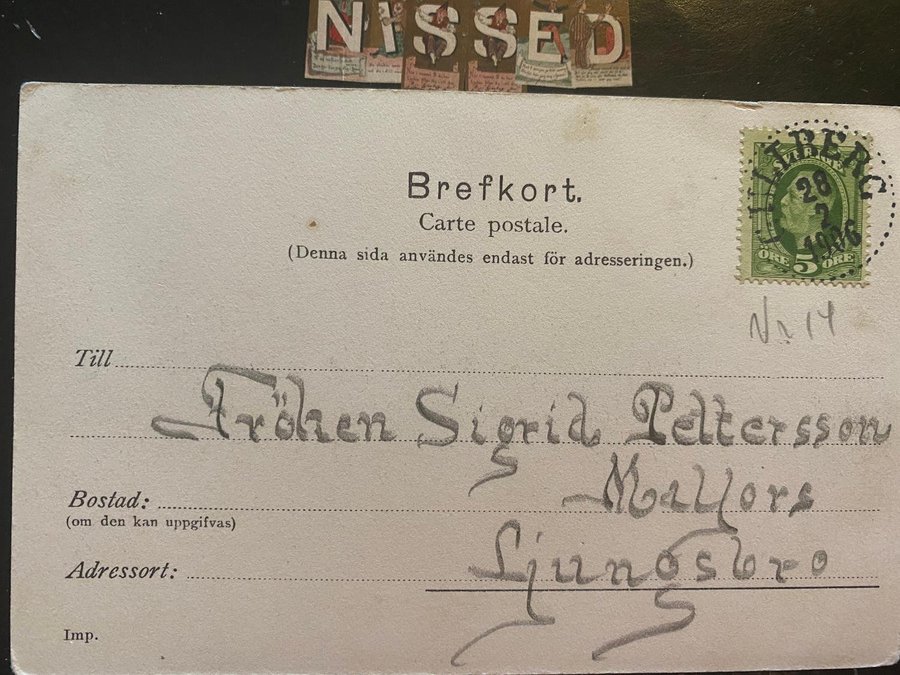 NISSED
Brefkort.
Carte postale.
(Denna sida användes endast för adresseringen.)
SVERIGE
28
2
1906
ÖRE 5 ÖRE
Nr 14
Till
Fröken Sigrid Pettersson
Bostad:
(om den kan uppgifvas)
Adressort:
Ljungsbro
Imp.